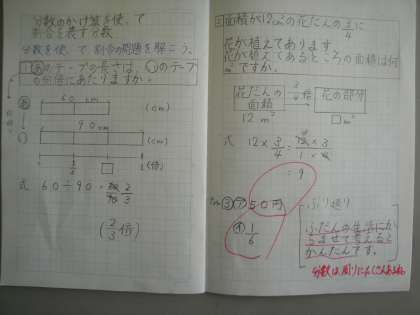 分数のかけ算を使って
割合を表す分数
分数を使って割合の問題を解こう。
1 あのテープの長さは、いのテープ
の何倍にあたりますか。
あ 60cm (cm)
い 90cm (cm)
1 (倍)
式 60÷90= 2/3
(2/3倍)
2 面積が12m²の花だんの3/4に
花が植えてあります。
花が植えてあるところの面積は何
m²ですか。
花だんの面積 3/4倍 花の部分
12m² □m²
式 12×3/4=
=9
③ ア 50円
イ 1/6
ふり返り
ふだんの生活に
かんたんです。
分数は周りにたくさんあるね